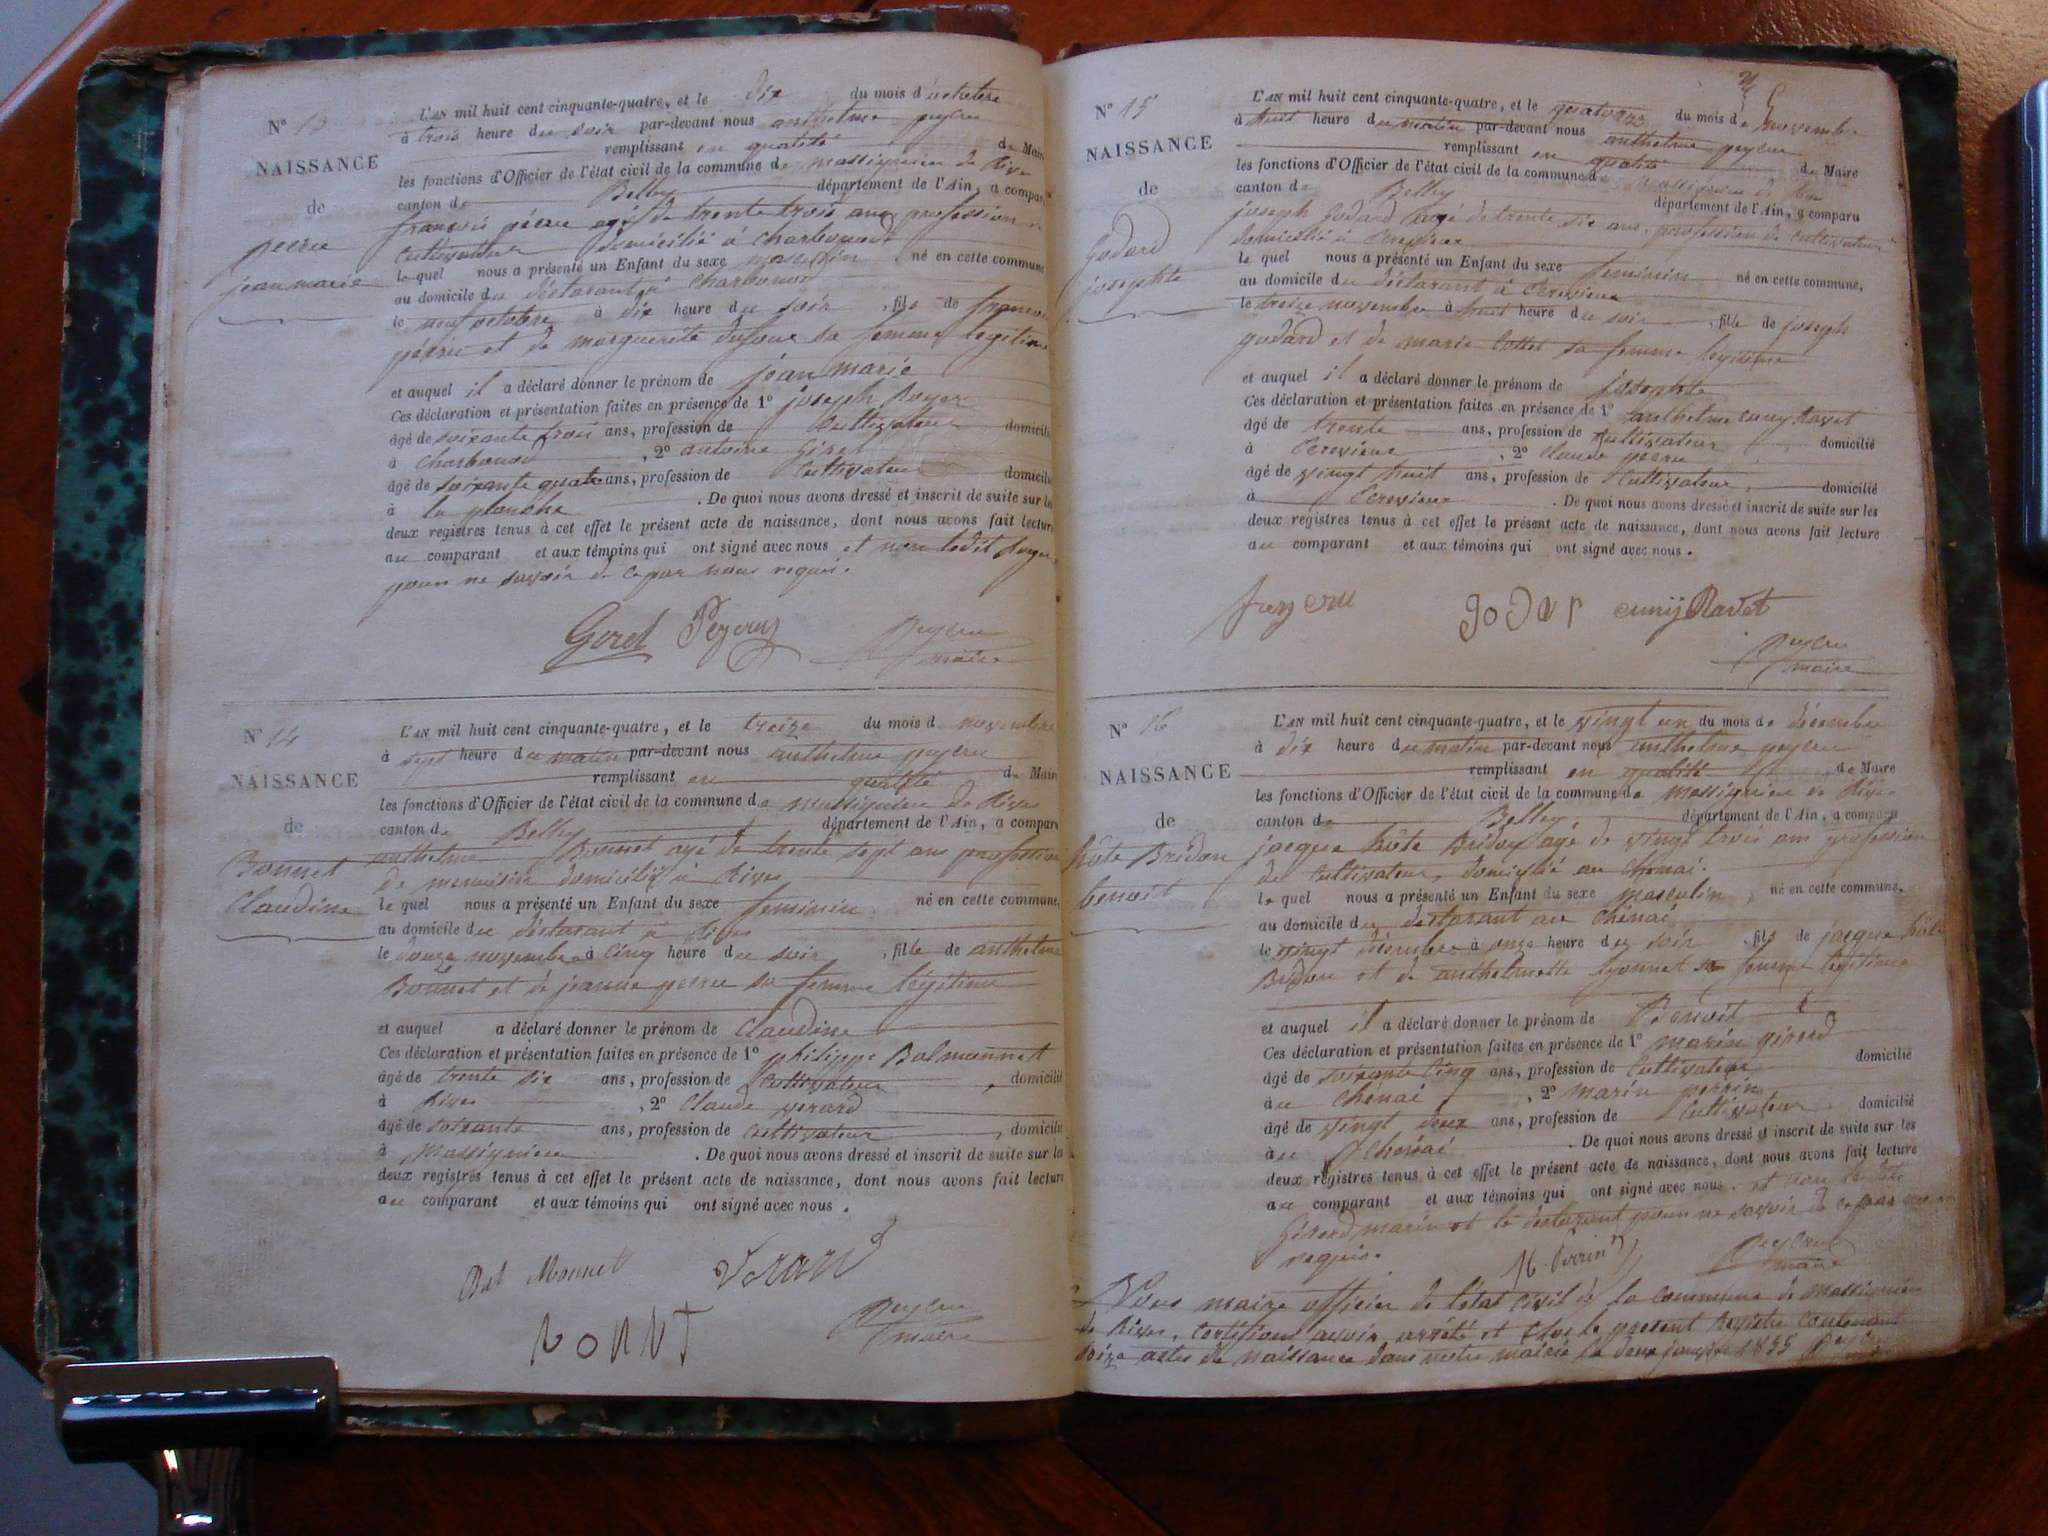 N° 13
NAISSANCE
de
peeru
jean marie
L'AN mil huit cent cinquante-quatre, et le dix du mois d'octobre
à trois heure du soir par-devant nous anthelme peycru
remplissant en qualité de Maire
les fonctions d'Officier de l'état civil de la commune de massignieu de Rives
canton de Belley département de l'Ain, a comparu
françois péeru agé de trente trois ans profession de
cultivateur domicilié à charbonod
lequel nous a présenté un Enfant du sexe masculin né en cette commune
au domicile du déclarant à charbonod
le neuf octobre à dix heure du soir, fils de françois
péeru et de marguerite dufour sa femme legitime
et auquel il a déclaré donner le prénom de jean marie
Ces déclaration et présentation faites en présence de 1° joseph Royer
âgé de soixante trois ans, profession de Cultivateur domicilié
à charbonod, 2° antoine Girel
âgé de soixante quatre ans, profession de Cultivateur domicilié
à la planche. De quoi nous avons dressé et inscrit de suite sur les
deux registres tenus à cet effet le présent acte de naissance, dont nous avons fait lecture
au comparant et aux témoins qui ont signé avec nous et non ledit
pour ne savoir de ce par nous requis.
Peycru
maire
N° 14
NAISSANCE
de
Bonnet
Claudine
L'AN mil huit cent cinquante-quatre, et le treize du mois de novembre
à sept heure du matin par-devant nous anthelme peycru
remplissant en qualité de Maire
les fonctions d'Officier de l'état civil de la commune de massignieu de Rives
canton de Belley département de l'Ain, a comparu
anthelme Bonnet agé de trente sept ans profession
de menuisier domicilié à Rives
lequel nous a présenté un Enfant du sexe feminin né en cette commune,
au domicile du déclarant à Rives
le douze novembre à cinq heure du soir, fille de anthelme
Bonnet et de jeanne peeru sa femme légitime
et auquel a déclaré donner le prénom de Claudine
Ces déclaration et présentation faites en présence de 1° philippe Balmonnet
âgé de trente six ans, profession de Cultivateur, domicilié
à Rives, 2° Claude verard
âgé de soixante ans, profession de Cultivateur, domicilié
à Massignieu. De quoi nous avons dressé et inscrit de suite sur les
deux registres tenus à cet effet le présent acte de naissance, dont nous avons fait lecture
au comparant et aux témoins qui ont signé avec nous.
Bal Monnet
peycru
maire
N° 15
NAISSANCE
de
Godard
josephte
L'AN mil huit cent cinquante-quatre, et le quatorze du mois de novembre
à huit heure du matin par-devant nous anthelme peycru
remplissant en qualité de Maire
les fonctions d'Officier de l'état civil de la commune de massignieu de Rives
canton de Belley département de l'Ain, a comparu
joseph Godard agé de trente six ans, profession de Cultivateur
domicilié à Cressieux
lequel nous a présenté un Enfant du sexe feminin né en cette commune,
au domicile du déclarant à Cressieux
le treize novembre à huit heure du soir, fille de joseph
godard et de marie Collet sa femme legitime
et auquel il a déclaré donner le prénom de josephte
Ces déclaration et présentation faites en présence de 1° anthelme cuny Ravet
âgé de trente ans, profession de Cultivateur, domicilié
à Cressieux, 2° Claude peeru
âgé de vingt huit ans, profession de Cultivateur, domicilié
à Cressieux. De quoi nous avons dressé et inscrit de suite sur les
deux registres tenus à cet effet le présent acte de naissance, dont nous avons fait lecture
au comparant et aux témoins qui ont signé avec nous.
goDar cunyRavet
peycru
maire
N° 16
NAISSANCE
de
hôte Bridon
benoit
L'AN mil huit cent cinquante-quatre, et le vingt un du mois de décembre
à dix heure du matin par-devant nous anthelme peycru
remplissant en qualité de Maire
les fonctions d'Officier de l'état civil de la commune de massignieu de Rives
canton de Belley, département de l'Ain, a comparu
jacque hôte Bridon agé de vingt trois ans profession
de Cultivateur, domicilié au Chenai.
lequel nous a présenté un Enfant du sexe masculin, né en cette commune,
au domicile du déclarant au Chénai
le vingt décembre à onze heure du soir, fils de jacque hôte
Bridon et de anthelmette lyonnet sa femme légitime
et auquel il a déclaré donner le prénom de Benoit
Ces déclaration et présentation faites en présence de 1° marin girerd
âgé de soixante cinq ans, profession de Cultivateur domicilié
au Chénai, 2° marin perrin
âgé de vingt deux ans, profession de Cultivateur domicilié
au Chénai. De quoi nous avons dressé et inscrit de suite sur les
deux registres tenus à cet effet le présent acte de naissance, dont nous avons fait lecture
au comparant et aux témoins qui ont signé avec nous. et non ledit
Girerd marin et le déclarant pour ne savoir de ce par nous
requis.
M. Perrin
Peycru
maire
Nous maire officier de l'état civil de la commune de Massignieu
de Rives, certifions avoir arrêté et Clos le present Registre contenant
seize actes de naissance dans notre mairie le deux janvier 1855